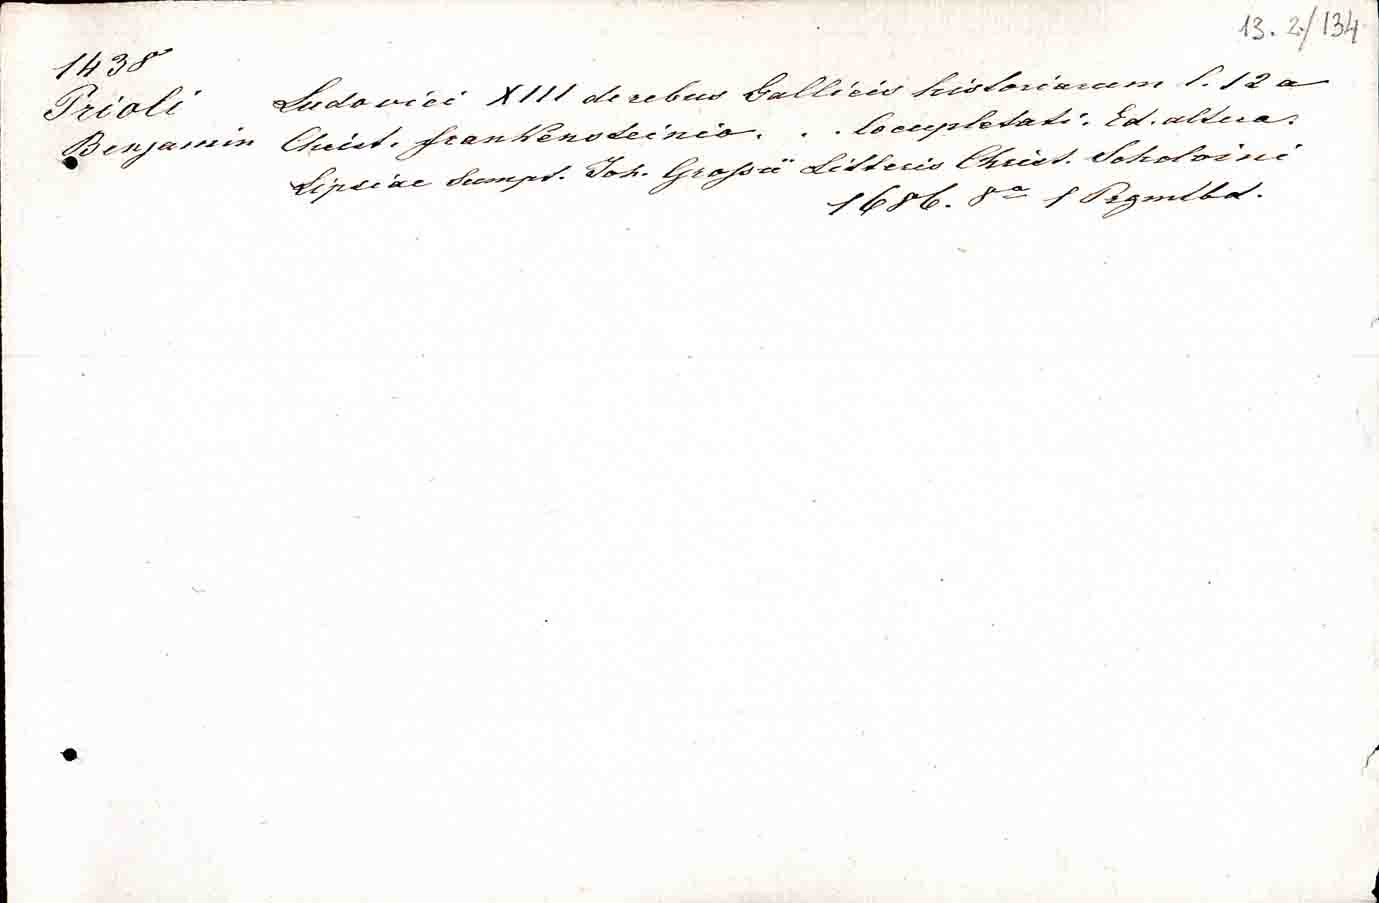 13. 2/134
1438
Prioli Ludovici XIII de rebus Gallicis historiarum l. 12 a
Benjamin Christ. Frankensteinio. . . locupletati. Ed. altera.
Lipsiae Sumpt. Joh. Grossii Litteris Christ. Scholvini
1686. 8° 1 Prgmtbd.